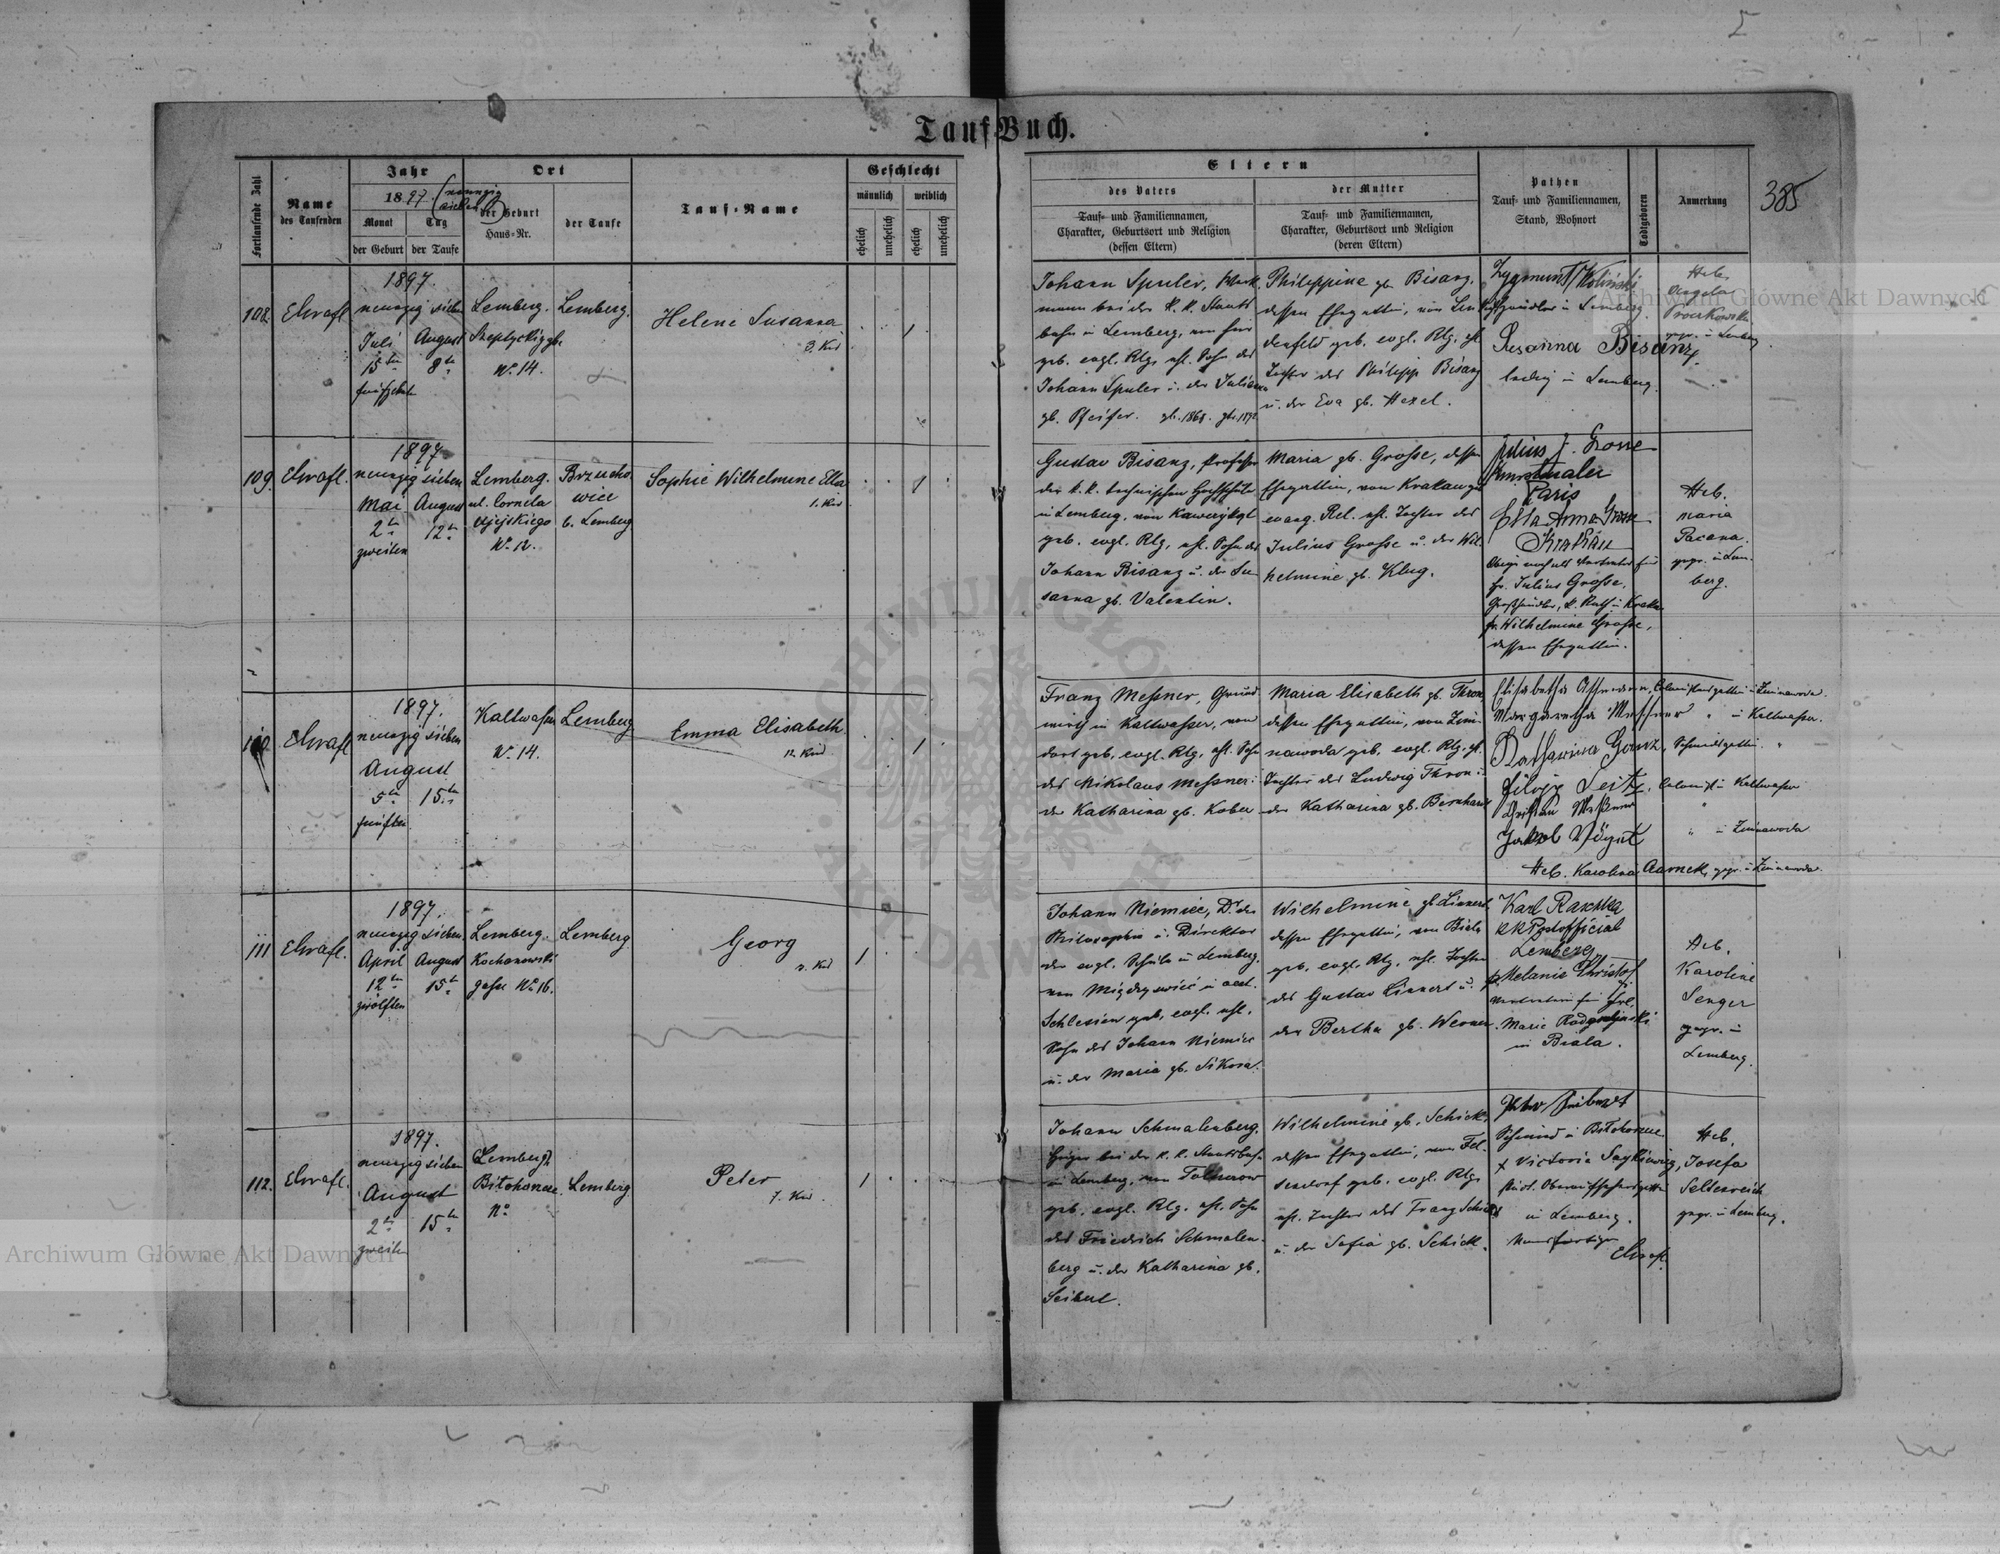 Tauf-Buch.
385
Fortlaufende Zahl
Name
des Taufenden
Jahr
1897 (neunzig
sieben)
Monat
Tag
der Geburt
der Taufe
Ort
der Geburt
Haus-Nr.
der Taufe
Tauf-Name
Geschlecht
männlich
weiblich
ehelich
unehelich
ehelich
unehelich
Eltern
des Vaters
Tauf- und Familiennamen,
Charakter, Geburtsort und Religion
(dessen Eltern)
der Mutter
Tauf- und Familiennamen,
Charakter, Geburtsort und Religion
(deren Eltern)
Pathen
Tauf- und Familiennamen,
Stand, Wohnort
Todtgeboren
Anmerkung
108.
1897.
neunzig sieben
Juli August
15te 8te
fünfzehnten
Lemberg.
No. 14.
Lemberg.
Helene Susanna
3. Kind
1
Johann Spuler, Werk
mann bei der k. k. Staats
bahn in Lemberg,
geb. evgl. Rlg. ehl. Sohn des
Johann Spuler u. der Juliana
gb. Pfeifer. gb. 1868.
Philippine gb. Bisanz,
dessen Ehegattin, von Lin
denfeld geb. evgl. Rlg. ehl.
Tochter des Philipp Bisanz
u. der Eva gb. Hexel.
Zygmunt
in Lemberg.
Susanna Bisanz,
ledig in Lemberg.
Heb.
Angela
gepr. in Lemberg
109.
1897
neunzig sieben
Mai August
2te 12te
zweiten
Lemberg.
ul. Cornela
Ujejskiego
No. 12.
Brzucho
wice
b. Lemberg
Sophie Wilhelmine Ella
1. Kind
1
Gustav Bisanz, Professor
der k. k. technischen Hochschule
in Lemberg, von
geb. evgl. Rlg, ehl. Sohn des
Johann Bisanz u. der Su
sanna gb. Valentin.
Maria gb. Grosse, dessen
Ehegattin, von Krakau gb
evang. Rel. ehl. Tochter des
Julius Grosse u. der Wil
helmine gb. Klug.
Julius J. Grosse
Kunstmaler
Paris
Ella Anna Grosse
Krakau
Obige auch als Vertreter für
Hr. Julius Grosse,
Großhändler, k. Rath in Krakau
Fr. Wilhelmine Grosse,
dessen Ehegattin.
Heb.
Maria
Pacana
gepr. in Lem
berg.
110.
1897.
neunzig sieben
August
5te 15te
fünften
Kaltwasser
No. 14.
Lemberg
Emma Elisabeth
12. Kind
1
Franz Messner, Grund
wirth in Kaltwasser, von
dort geb. evgl. Rlg. ehl. Sohn
des Nikolaus Messner u.
der Katharina gb. Kober
Maria Elisabeth gb. Thron
dessen Ehegattin, von Zim
nawoda geb. evgl. Rlg. ehl.
Tochter des Ludwig Thron u.
der Katharina gb. Bernhardt
Margaretha Messner " in Kaltwasser.
Katharina Ganz, Schmiedsgattin "
Filipp Seitz, Colonist in Kaltwasser
Christian Meßner "
Jakob Vögut " in Zimnawoda
Heb. Karolina gepr. in Zimnawoda.
111
1897.
neunzig sieben
April August
12te 15te
zwölften
Lemberg.
Kochanowski
gasse No. 16.
Lemberg
Georg
2. Kind
1
Johann Niemiec, Dr. der
Philosophie u. Direktor
der evgl. Schule in Lemberg,
von in oest.
Schlesien geb. evgl. ehl.
Sohn des Johann Niemiec
u. der Maria gb. Sikora.
Wilhelmine gb. Linnert,
dessen Ehegattin, von Biala
geb. evgl. Rlg. ehl. Tochter
des Gustav Linnert u.
der Bertha gb. Werner.
Karl Raschka
k k Postofficial
Lemberg
Melanie Christof
Vertreterin für Frl.
Marie
in Biala.
Heb.
Karoline
Senger
gepr. in
Lemberg.
112.
1897.
neunzig sieben
August
2te 15te
zweiten
Lemberg
No
Lemberg
Peter
7. Kind
1
Johann Schmalenberg,
Heizer bei der k. k. Staatsbahn
in Lemberg, von
geb. evgl. Rlg. ehl. Sohn
des Friedrich Schmalen
berg u. der Katharina gb.
Seibert.
Wilhelmine gb. Schick,
dessen Ehegattin, von Fel
sendorf geb. evgl. Rlg.
ehl. Tochter des Franz Schick
u. der Sofia gb. Schick.
Peter Seibert
Schmied in
in Lemberg.
Heb.
Josefa
Selterreich
gepr. in Lemberg.
Archiwum Główne Akt Dawnych
Archiwum Główne Akt Dawnych
ARCHIWUM GŁÓWNE AKT DAWNYCH